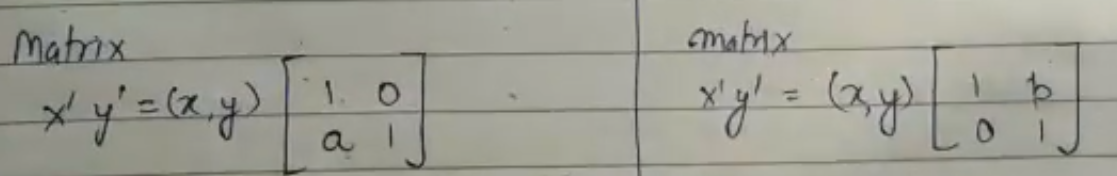 Matrix
x' y' = (x, y) [1 0
a 1]
matrix
x' y' = (x, y) [1 b
0 1]